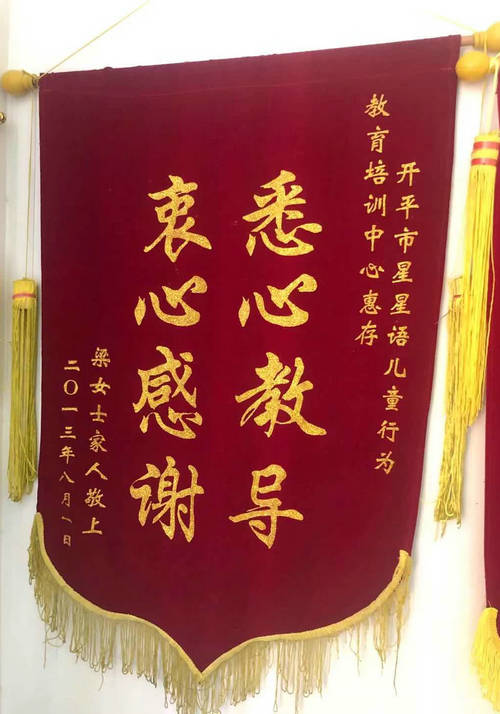 开平市星星语儿童行为
教育培训中心惠存
悉心教导
衷心感谢
梁女士家人敬上
二〇一三年八月一日